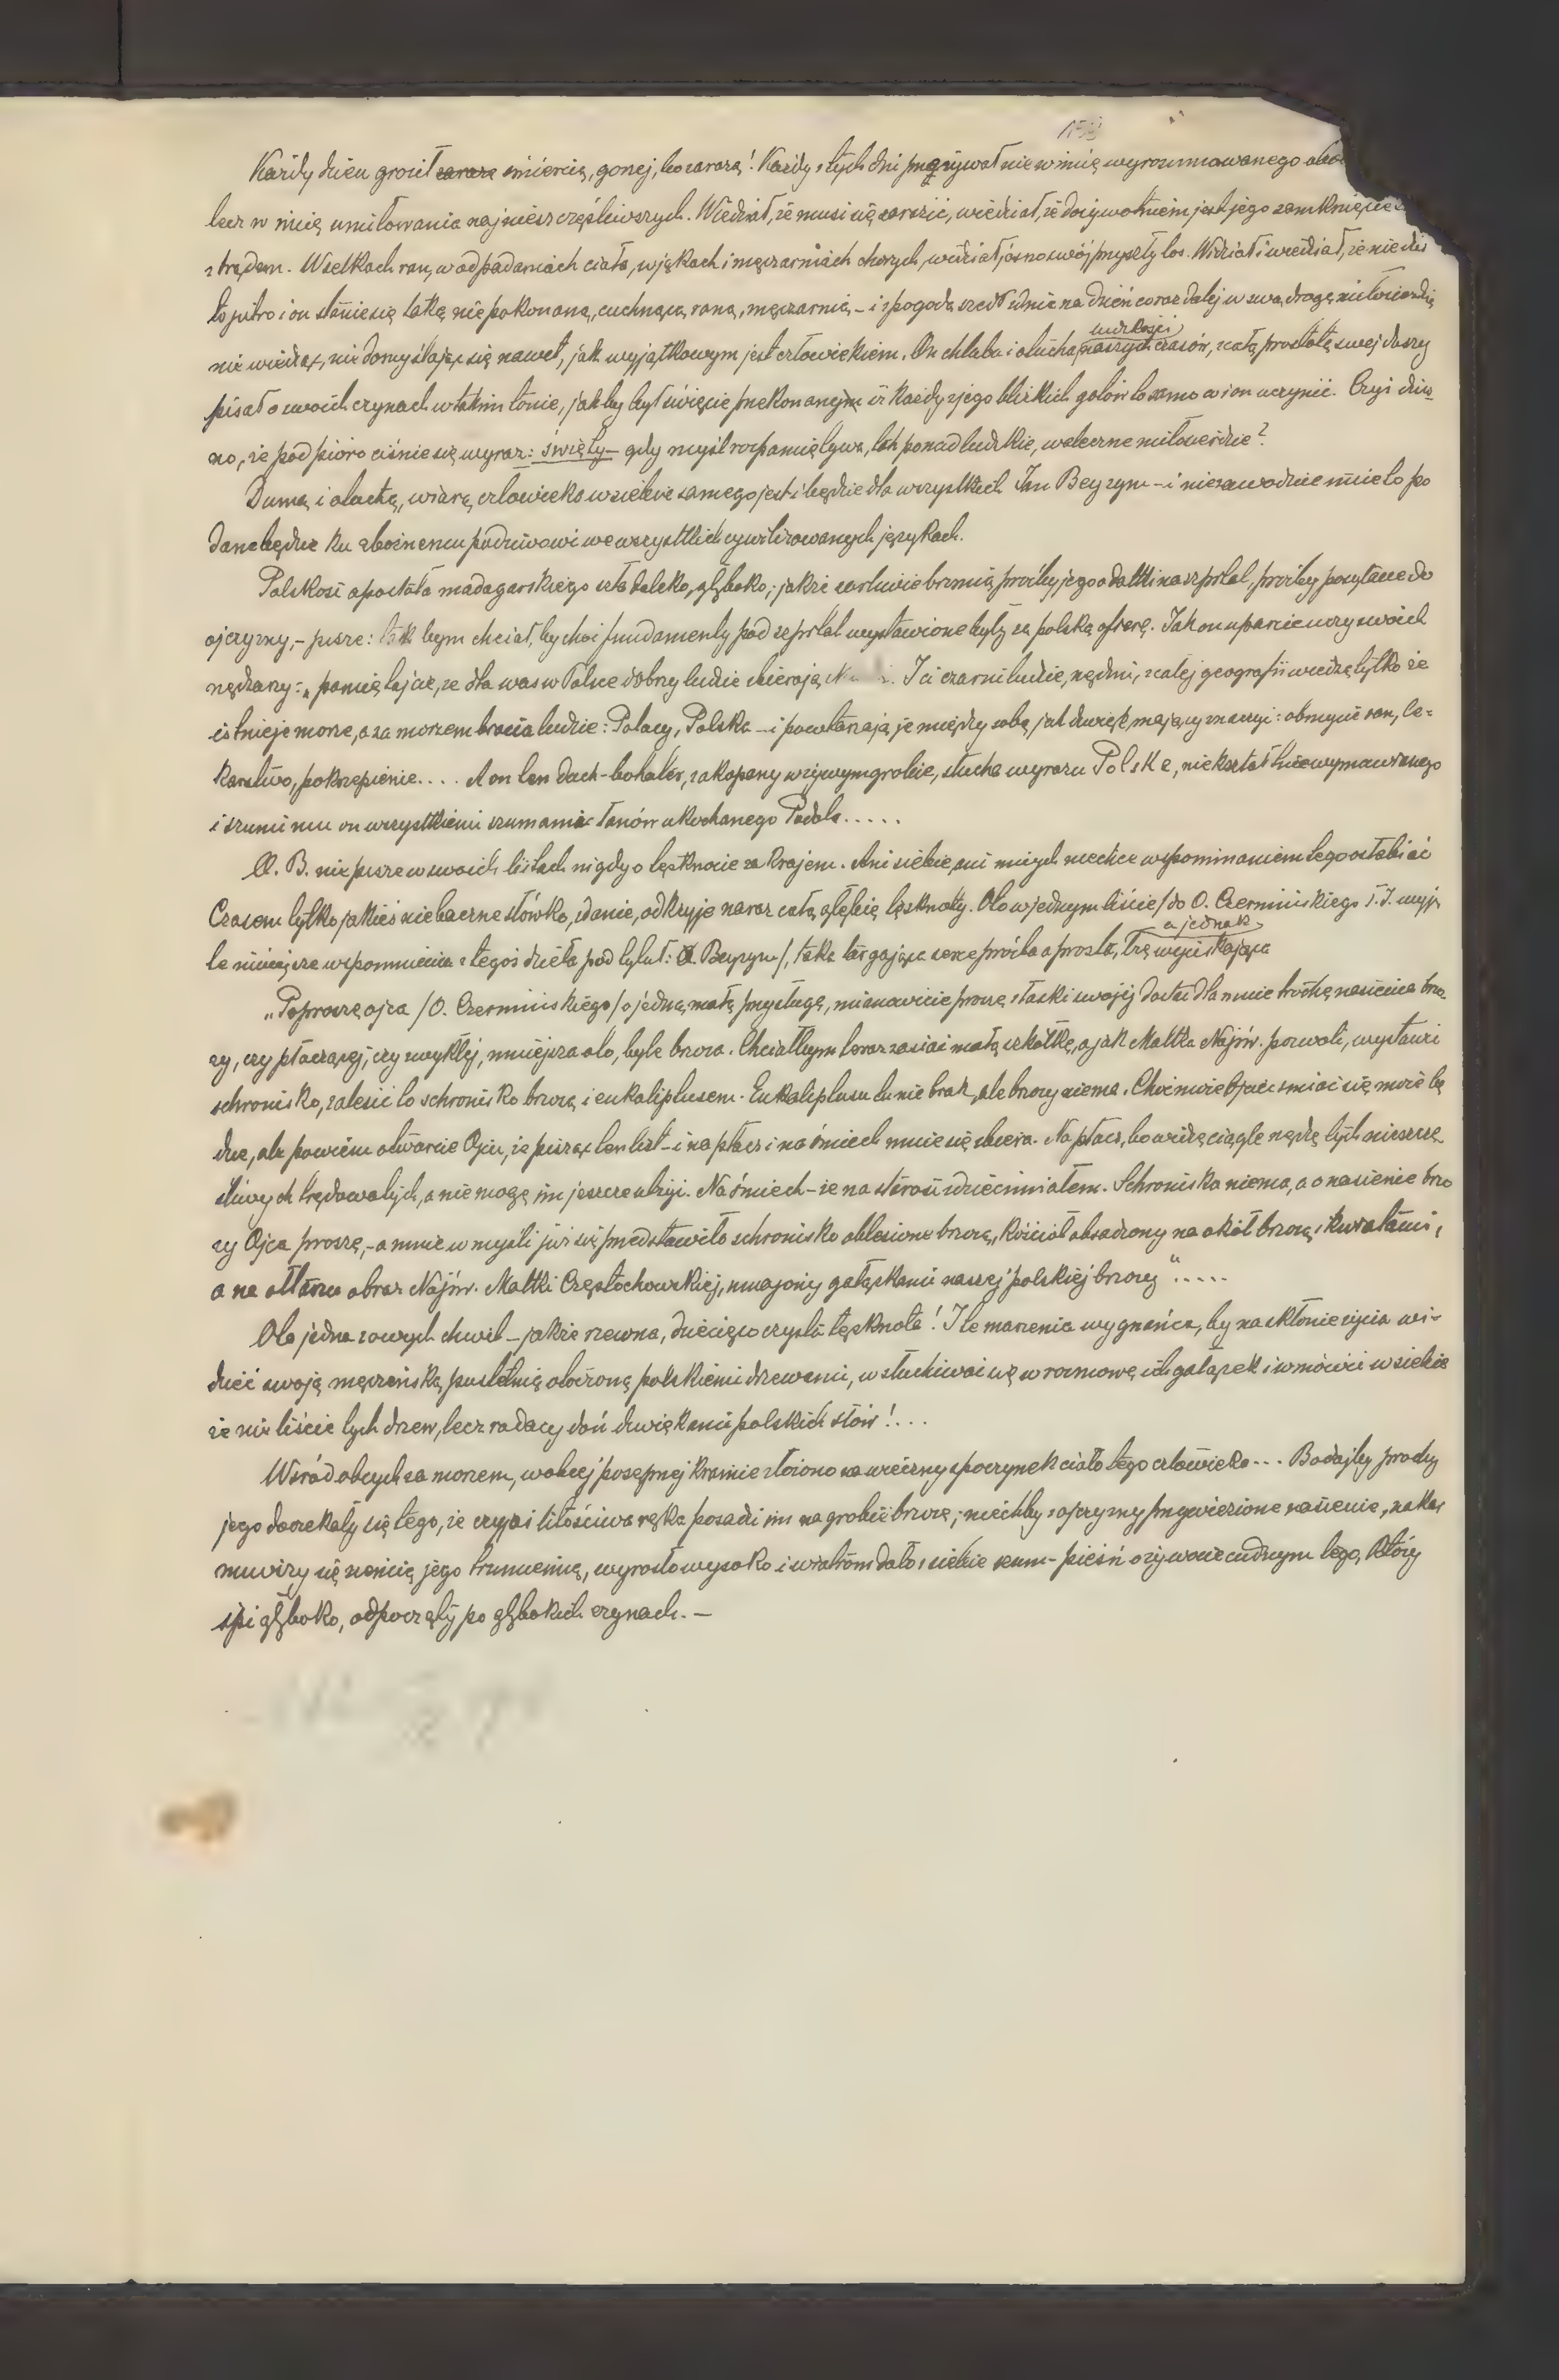 158
Każdy dzień groził zarazą śmiercią, gorzej, bo zarazą! Każdy z tych dni przeżywał nie w imię wyrozumowanego
lecz w imię umiłowania najnieszczęśliwszych. Wiedział, że musi się zarazić, wiedział, że dożywotniem jest jego zamknięcie
z trądem. W setkach ran, w odpadaniach ciała, w jękach i męczarniach chorych, widział jasno swój przyszły los. Widział i wiedział, że nie dziś
to jutro i on stanie się taką niepokonaną, cuchnącą raną, męczarnią – i z pogodą szedł z dnia na dzień coraz dalej w swą drogę
nie wiedząc, nie domyślając się nawet, jak wyjątkowym jest człowiekiem. On chluba i otucha, ludzkości naszych czasów, z całą prostotą swej duszy
pisał o swoich czynach w takim tonie, jak by był święcie przekonanym iż każdy z jego bliskich gotów to samo co i on uczynić. Czyż dziw
no, że pod pióro ciśnie się wyraz: święty – gdy myśl rozpamiętywa, tak ponadludzkie, waleczne miłosierdzie?
Dumą i otuchą, wiarą człowieka w siebie samego jest i będzie dla wszystkich Jan Beyzym – i niezawodnie imię to po
dane będzie ku zbożnemu podziwowi we wszystkich cywilizowanych językach.
Polskość apostoła madagarskiego szła daleko, głęboko; jakże żarliwie brzmią prośby jego o datki na szpital, prośby posyłane do
ojczyzny, – pisze: tak bym chciał, by choć fundamenty pod szpital wystawione były za polską ofiarę. Jak on uparcie uczy swoich
nędzarzy: „pamiętajcie, że dla was w Polsce dobrzy ludzie zbierają. I ci czarni ludzie, nędzni, z całej geografii wiedzą tylko że
istnieje morze, a za morzem bracia ludzie: Polacy, Polska – i powtarzają je między sobą jak dźwięk, mający znaczyć: obmycie ran, le=
karstwo, pokrzepienie.... A on ten duch-bohater, zakopany w żywym grobie, słucha wyrazu Polska, niekształtnie wymawianego
i szumi mu on wszystkiemi szumami łanów ukochanego Podola.....
O. B. nie pisze w swoich listach nigdy o tęsknocie za krajem. Ani siebie, ani innych nie chce wspominaniem tego osłabiać
Czasem tylko jakieś niebaczne słówko, zdanie, odkryje naraz całą głębię tęsknoty. Oto w jednym liście /do O. Czermińskiego T. J. wyję
te niniejsze wspomnienia z tegoś dzieła pod tytuł: O. Beyzym/, taka targająca serce prośba a prosta, a jednak łzę wyciskająca
„Poproszę ojca /O. Czermińskiego/ o jedną, małą przysługę, mianowicie proszę z łaski swojej dostać dla mnie troszkę nasienia brzo
zy, czy płaczącej, czy zwykłej, mniejsza oto, byle brzoza. Chciałbym teraz zasiać małą szkółkę, a jak Matka Najśw. pozwoli, wystawić
schronisko, zalesić to schronisko brzozą i eukaliptusem. Eukaliptusu tu nie brak, ale brzozy niema. Choć mnie Ojciec śmiać się może bę
dzie, ale powiem otwarcie Ojcu, że pisząc ten list – i na płacz i na śmiech mnie się zbiera. Na płacz, bo widzę ciągle nędzę tych nieszczę
śliwych trędowatych, a nie mogę im jeszcze ulżyć. Na śmiech – że na starość zdziecinniałem. Schroniska niema, a o nasienie brzo
zy Ojca proszę, – a mnie w myśli już się przedstawiło schronisko oblesione brzozą, Kościół obsadzony na okół brzozą i kwiatami,
a na ołtarzu obraz Najśw. Matki Częstochowskiej, umajony gałązkami naszej polskiej brzozy“.....
Oto jedna z owych chwil – jakże rzewna, dziecięco czysta tęsknota! Ile marzenia wygnańca, by na skłonie życia wi=
dzieć swoją męczeńską pustelnię otoczoną polskiemi drzewami, wsłuchiwać się w rozmowę ich gałązek i wmówić w siebie
że nie liście tych drzew, lecz rodacy doń dźwiękami polskich słów!...
Wśród obcych za morzem, w obcej posępnej krainie złożono na wieczny spoczynek ciało tego człowieka... Bodajby prochy
jego doczekały się tego, że czyjaś litościwa ręka posadzi im na grobie brzozę; niechby z ojczyzny przywiezione nasienie,
się jego trumienną, wyrosło wysoko i wiatrom dało z siebie szum – pieśń o żywocie cudnym tego, który
śpi głęboko, odpoczęty po głębokich czynach. –